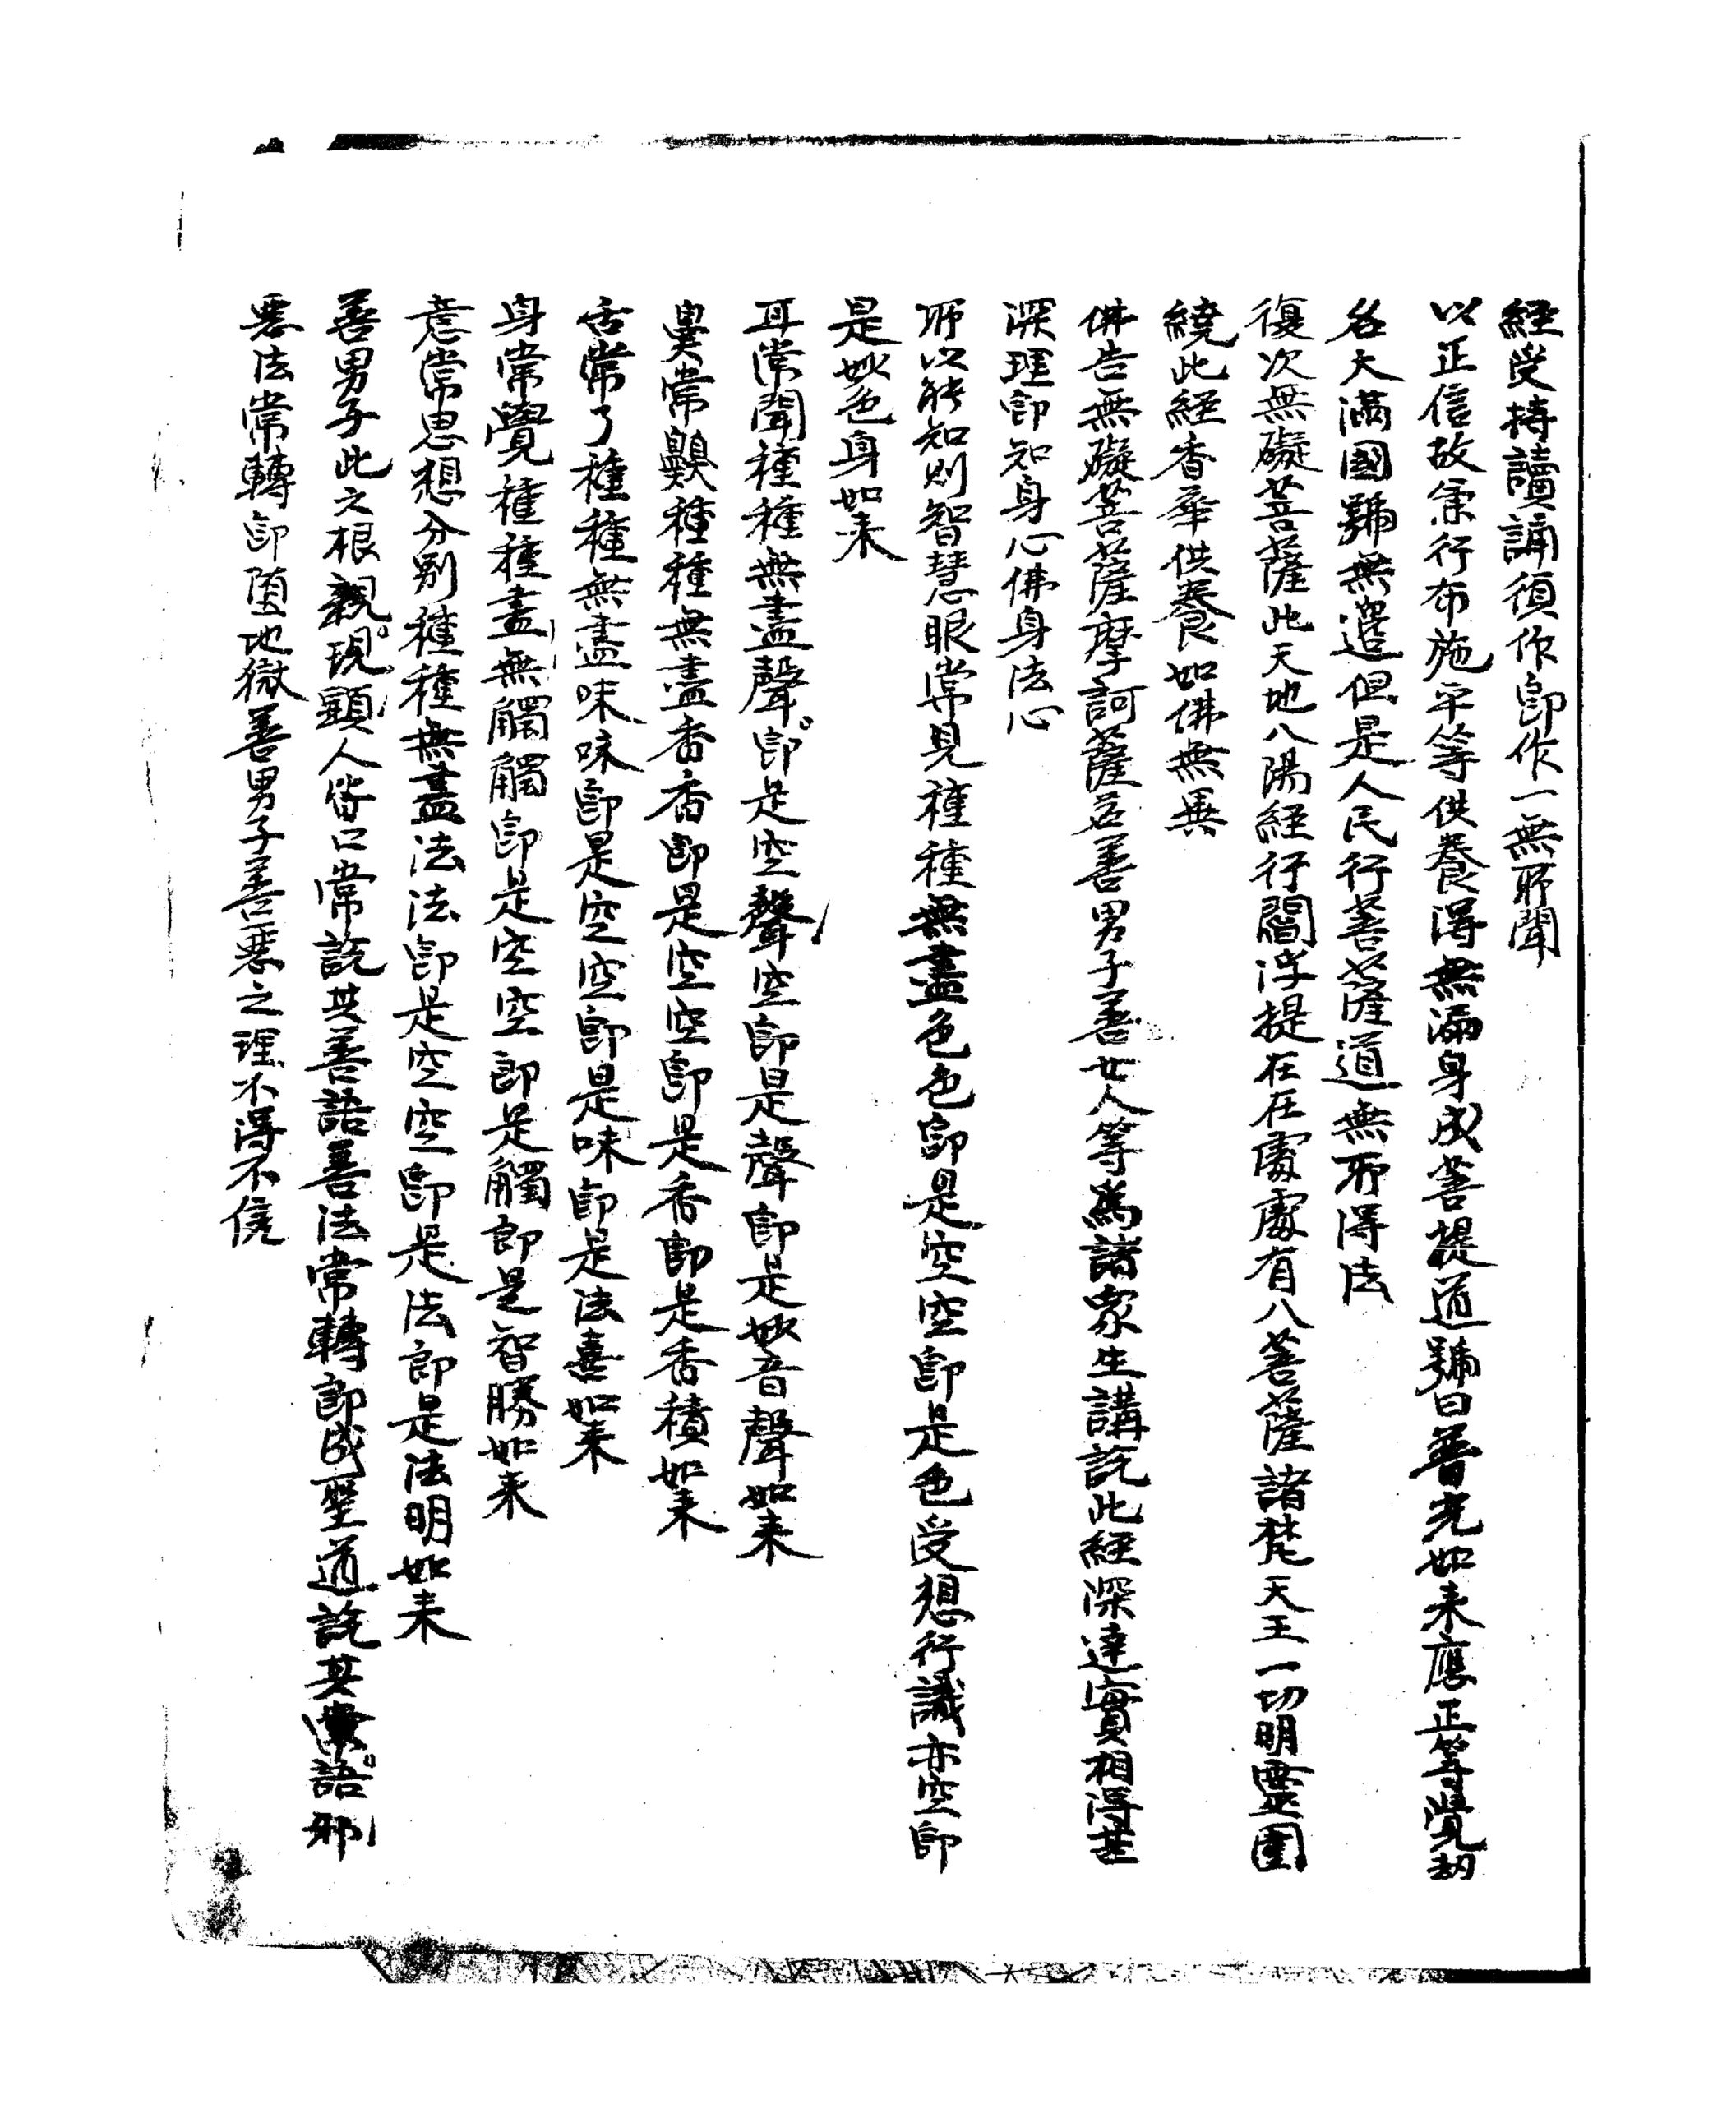 經受持讀誦須作即作一無所聞
以正信故兼行布施平等供養得無漏身成菩提道號曰普光如来應正等覺劫
名大滿國號無邊但是人民行菩薩道無所得法
復次無礙菩薩此天地八陽經行閻浮提在在處處有八菩薩諸梵天王一切明靈圍
繞此經香華供養如佛無異
佛告無礙菩薩摩訶薩若善男子善女人等為諸眾生講說此經深達實相得甚
深理即知身心佛身法心
所以能知則智慧眼常見種種無盡色色即是空空即是色受想行識亦空即
是妙色身如来
耳常聞種種無盡聲即是空聲空即是聲即是妙音聲如来
鼻常齅種種無盡香香即是空空即是香即是香積如来
舌常了種種無盡味味即是空空即是味即是法喜如来
身常覺種種盡無觸觸即是空空即是觸即是智勝如来
意常思想分別種種無盡法法即是空空即是法即是法明如来
善男子此之根親現顯人皆口常說其善語善法常轉即成聖道說其語邪
惡法常轉即墮地獄善男子善惡之理不得不信